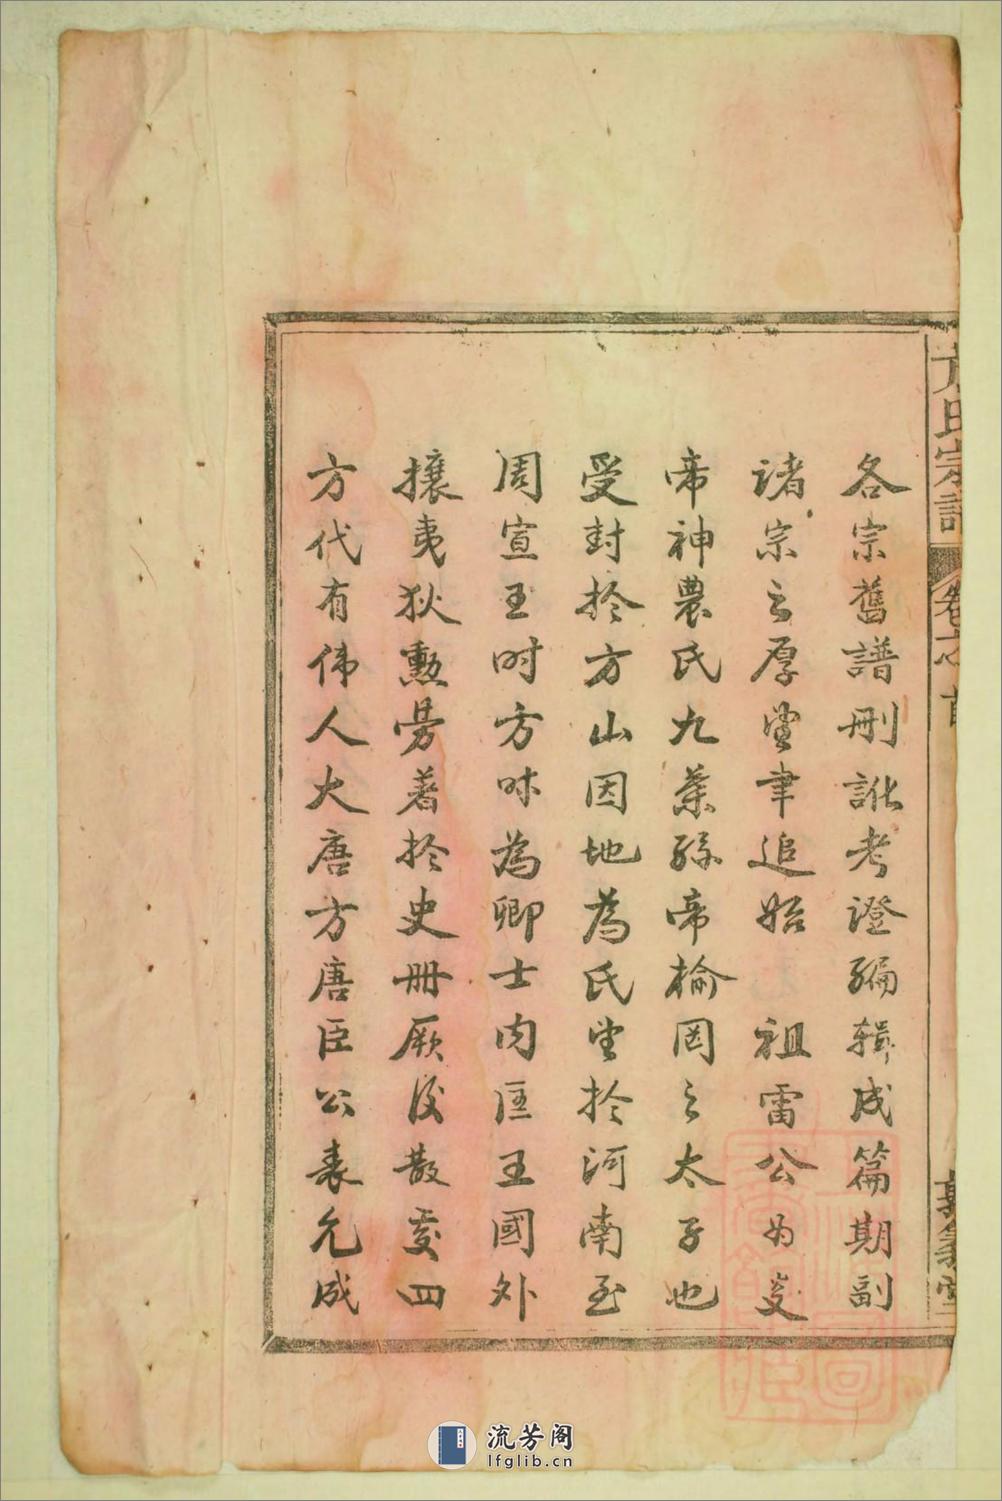 方氏宗譜
卷之首
敦義堂
各宗舊譜刪訛考證編輯成篇期副
諸宗之厚望聿追始祖雷公為炎
帝神農氏九葉孫帝榆罔之太子也
受封於方山因地為氏望於河南至
周宣王时方叔為卿士内匡王國外
攘夷狄勳勞著於史册厥後散處四
方代有偉人大唐方唐臣公表允成
流芳阁
lfglib.cn